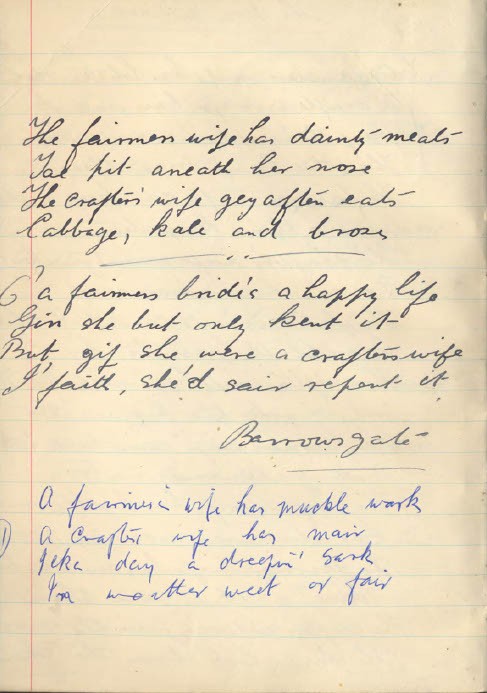 The fairmers wife has dainty meats
Tae pit aneath her nose
The crafter's wife gey aften eats
Cabbage, kale and brose
O' a fairmers bride's a happy life
Gin she but only kent it
But, gif she were a crafters wife
I' faith, she'd sair repent it
Barrowsgate
A fairmer's wife has muckle wark
A crafter's wife has mair
1) Ilka day a dreepin' sark
In weather weet or fair